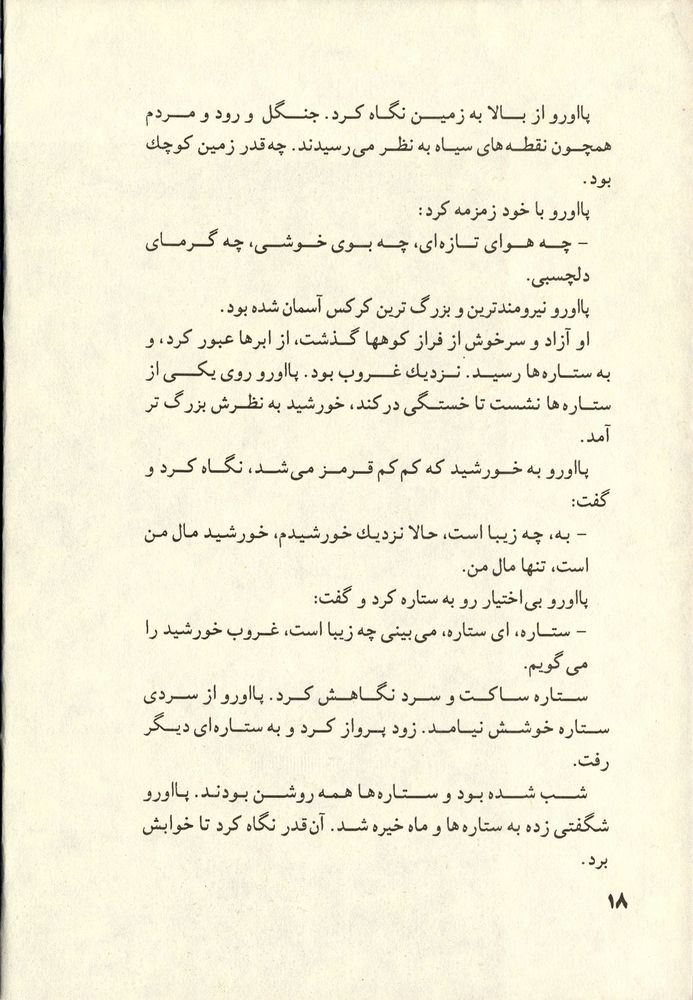 پااورو از بالا به زمین نگاه کرد. جنگل و رود و مردم
همچون نقطه‌های سیاه به نظر می‌رسیدند. چه‌قدر زمین کوچك
بود.
پااورو با خود زمزمه کرد:
– چه هوای تازه‌ای، چه بوی خوشی، چه گرمای
دلچسبی.
پااورو نیرومندترین و بزرگ ترین کرکس آسمان شده بود.
او آزاد و سرخوش از فراز کوهها گذشت، از ابرها عبور کرد، و
به ستاره‌ها رسید. نزدیك غروب بود. پااورو روی یکی از
ستاره‌ها نشست تا خستگی درکند، خورشید به نظرش بزرگ تر
آمد.
پااورو به خورشید که کم کم قرمز می‌شد، نگاه کرد و
گفت:
– به، چه زیبا است، حالا نزدیك خورشیدم، خورشید مال من
است، تنها مال من.
پااورو بی‌اختیار رو به ستاره کرد و گفت:
– ستاره، ای ستاره، می‌بینی چه زیبا است، غروب خورشید را
می‌گویم.
ستاره ساکت و سرد نگاهش کرد. پااورو از سردی
ستاره خوشش نیامد. زود پرواز کرد و به ستاره‌ای دیگر
رفت.
شب شده بود و ستاره‌ها همه روشن بودند. پااورو
شگفتی زده به ستاره‌ها و ماه خیره شد. آن‌قدر نگاه کرد تا خوابش
برد.
۱۸